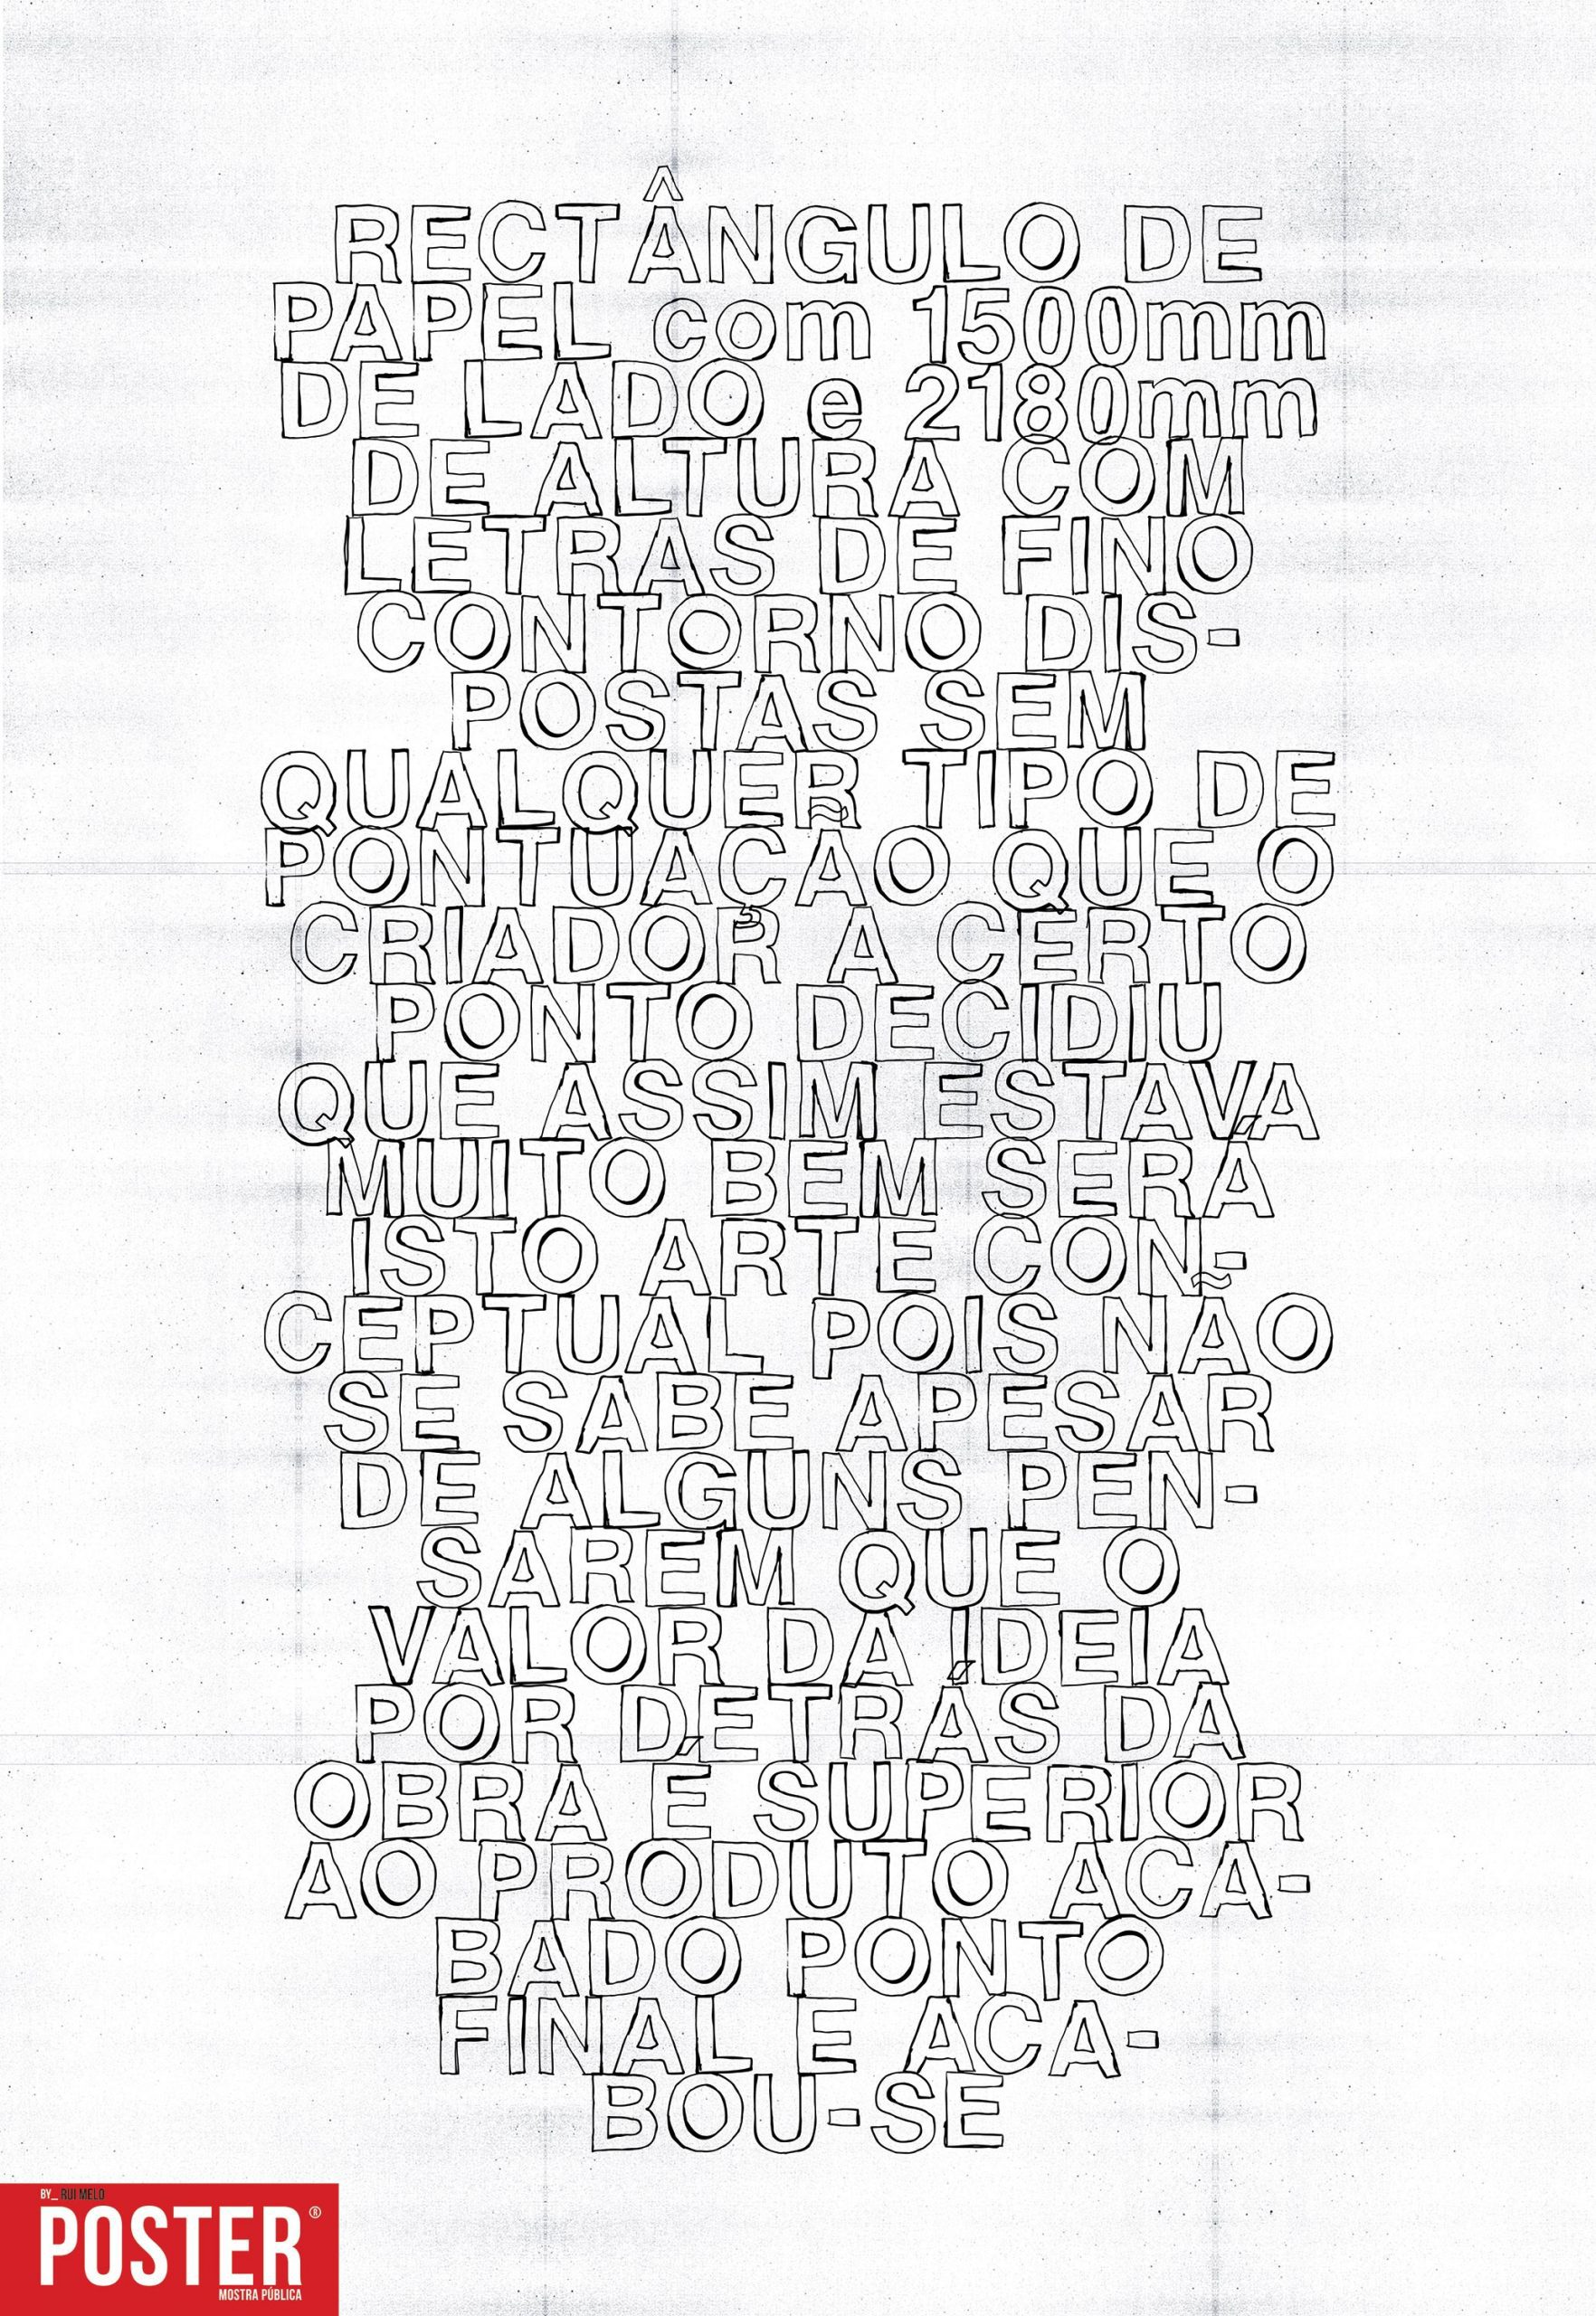 RECTÂNGULO DE
PAPEL com 1500mm
DE LADO e 2180mm
DE ALTURA COM
LETRAS DE FINO
CONTORNO DIS-
POSTAS SEM
QUALQUER TIPO DE
PONTUAÇÃO QUE O
CRIADOR A CERTO
PONTO DECIDIU
QUE ASSIM ESTAVA
MUITO BEM SERÁ
ISTO ARTE CON-
CEPTUAL POIS NÃO
SE SABE APESAR
DE ALGUNS PEN-
SAREM QUE O
VALOR DA IDEIA
POR DETRÁS DA
OBRA É SUPERIOR
AO PRODUTO ACA-
BADO PONTO
FINAL E ACA-
BOU-SE
BY_RUI MELO
POSTER®
MOSTRA PÚBLICA